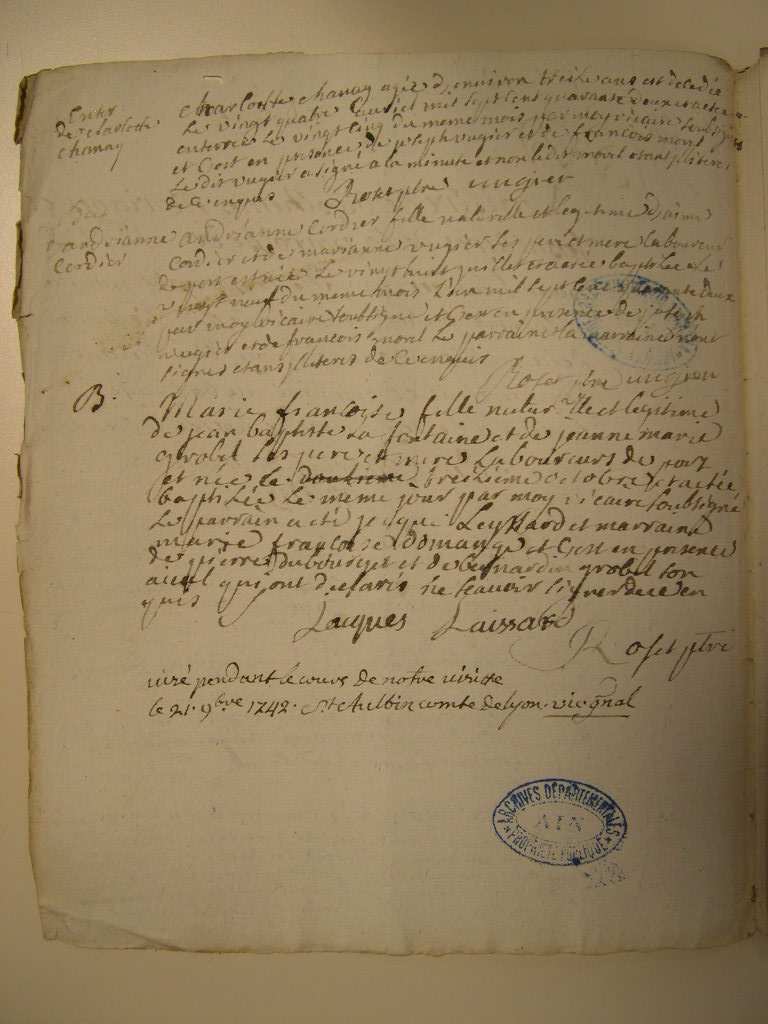 Enter
de charlotte
chanay
charlotte chanay agée d'environ treise ans est decedée
le vingt quatre juillet mil sept cent quarante deux et a eté
enterrée le vingt cinq du meme mois par moy vicaire soubsigné
et c'est en presence de joseph vugier et de francois morel
le dit vugier a signé a la minute et non ledit morel etant illiteré
de ce enquis Roset ptre vugier
Bap
dandrianne
Cordier
andrianne cordier fille naturelle et legitime
cordier et de marianne vugier ses pere et mere laboureurs
de port est née le vingt huit juillet et a eté baptisée le
vingt neuf du meme mois l'an mil sept cent quarante deux
par moy vicaire soubsigné et c'est en presence de joseph
vugier et de francois morel le parrain la marraine n'ont
signés etans illiterés de ce enquis
Roset ptre vugier
B.
Marie francoise fille naturelle et legitime
de jean baptiste la fontaine et de jeanne marie
grobel ses pere et mere laboureurs de port
est née le douzieme treizieme octobre et a eté
baptisée le meme jour par moy vicaire soubsigné
le parrain a eté jacque Leyssard et marraine
marie francoise domange et c'est en presence
de pierre dubourget et de bernardin grobel son
aieul qui ont declarés ne scavoir signer de ce en
quis
Jacques Laissard
Roset ptre
viré pendant le cours de notre visitte
le 21. 9bre 1742. St Aulbin comte de Lyon. vic gnal
ARCHIVES DÉPARTEMENTALES
AIN
PROPRIÉTÉ PUBLIQUE